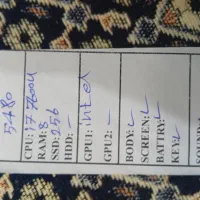 5480
CPU: i7 7600U
RAM: 8
SSD: 256
HDD: -
GPU1: intel
GPU2: -
BODY: ✓
SCREEN: ✓
BATTRY: ✓
KEY: ✓